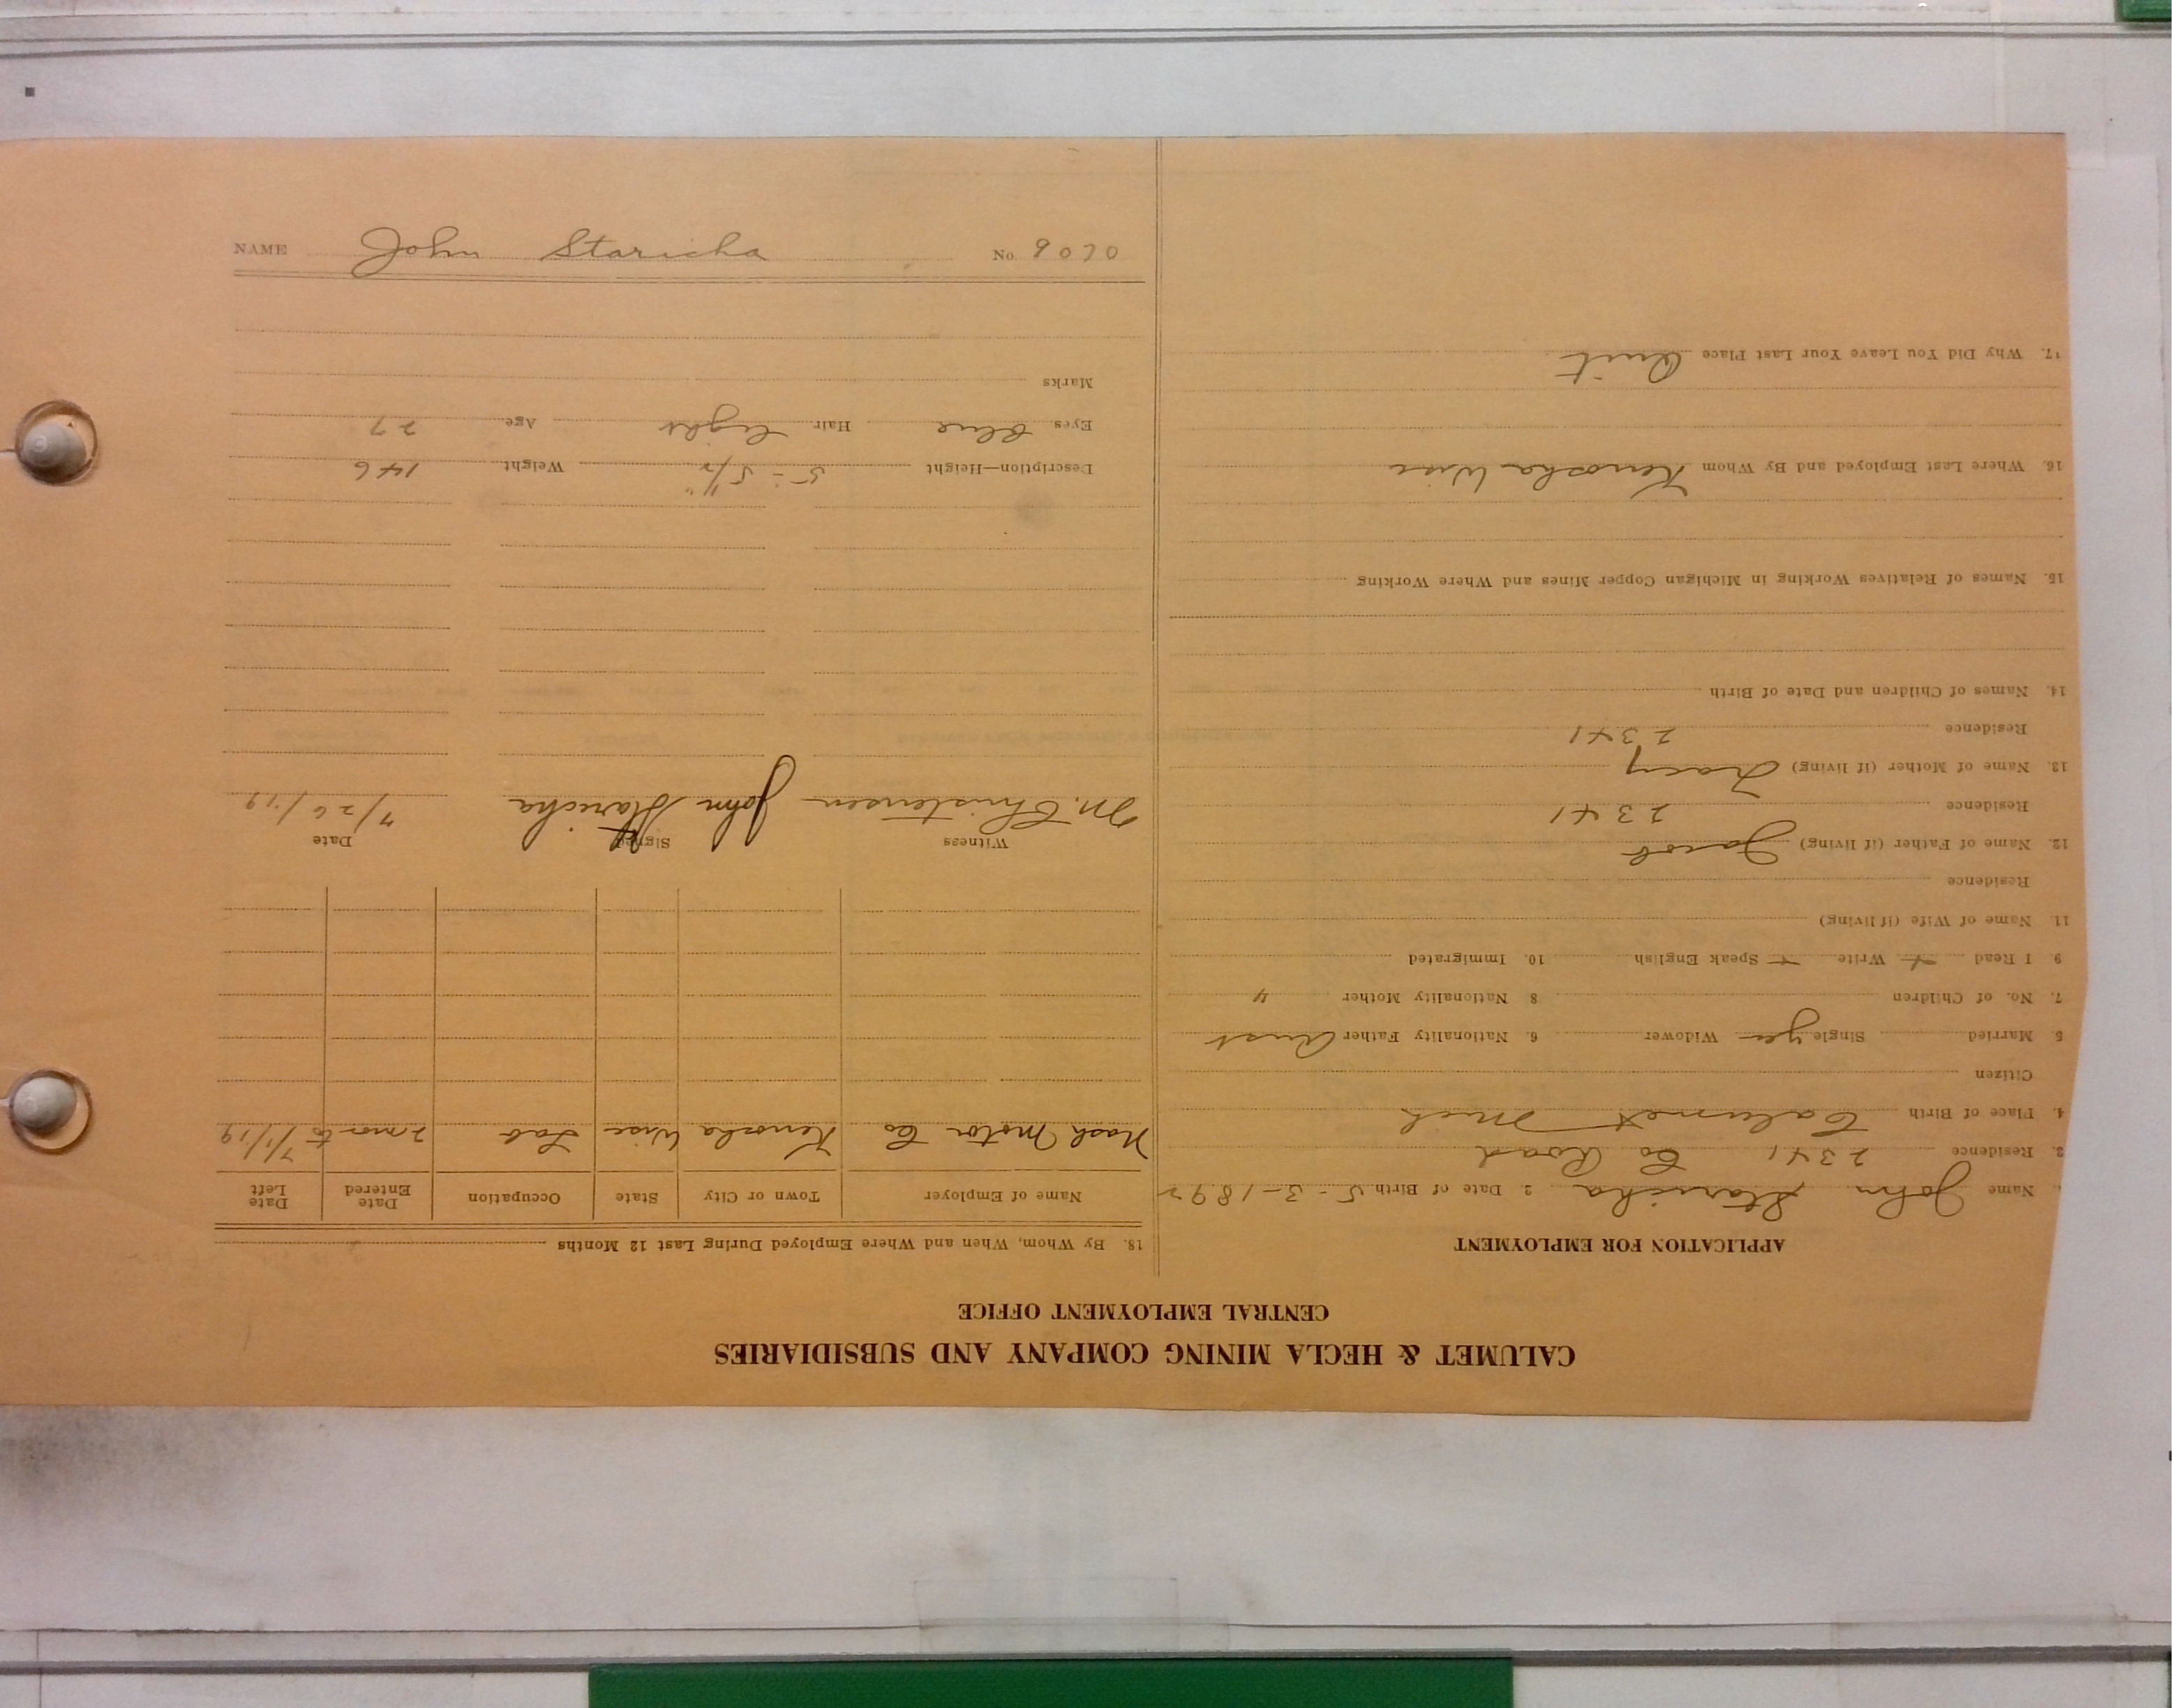 CALUMET & HECLA MINING COMPANY AND SUBSIDIARIES
CENTRAL EMPLOYMENT OFFICE
APPLICATION FOR EMPLOYMENT
Name John Staricha 2. Date of Birth 5-3-1892
3. Residence 2341 Co Road
4. Place of Birth Calumet Mich
Citizen
5. Married Single yes Widower 6. Nationality Father Aust
7. No. of Children 8 Nationality Mother "
9. I Read Write Speak English 10. Immigrated
11. Name of Wife (if living)
Residence
12. Name of Father (if living) Jacob
Residence 2341
13. Name of Mother (if living) Tracy
Residence 2341
14. Names of Children and Date of Birth
15. Names of Relatives Working in Michigan Copper Mines and Where Working
16. Where Last Employed and By Whom Kenosha Wisc
17. Why Did You Leave Your Last Place Quit
18. By Whom, When and Where Employed During Last 12 Months
Name of Employer Town or City State Occupation Date Entered Date Left
Nash Motor Co Kenosha Wisc Lab 2 mos to 7/1/19
Witness Signed Date
M. Christensen John Staricha 7/26/19
Description—Height 5-5½" Weight 146
Eyes Blue Hair light Age 27
Marks
NAME John Staricha No. 9070